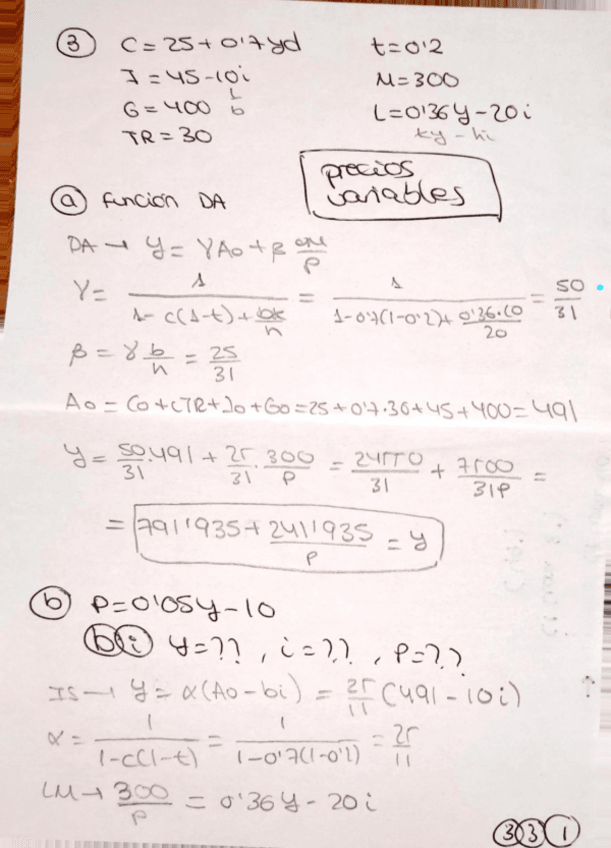 ③ C = 25 + 0'7yd t = 0'2
I = 45 - 10i M = 300
G = 400 b L = 0'36y - 20i
TR = 30 ky - hi
precios variables
ⓐ función DA
DA → y = γAo + β M/P
γ = 1/(1 - c(1-t) + bk/h) = 1/(1 - 0'7(1-0'2) + 0'36·10/20) = 50/31
β = γ b/h = 25/31
Ao = Co + cTR + Io + Go = 25 + 0'7·30 + 45 + 400 = 491
y = 50/31·491 + 25/31·300/P = 24550/31 + 7500/31P =
= 791'1935 + 241'1935/P = y
ⓑ P = 0'05y - 10
ⓑⓘ y = ??, i = ??, P = ??
IS → y = α(Ao - bi) = 25/11 (491 - 10i)
α = 1/(1-c(1-t)) = 1/(1-0'7(1-0'2)) = 25/11
LM → 300/P = 0'36y - 20i
③③①